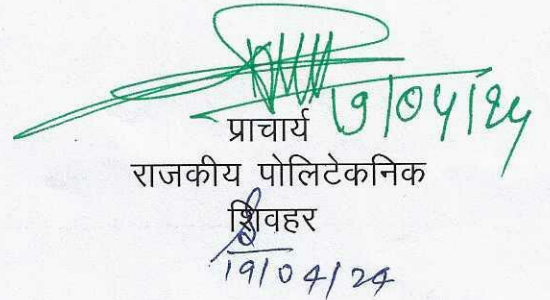 19/04/24
प्राचार्य
राजकीय पोलिटेकनिक
शिवहर
19/04/24